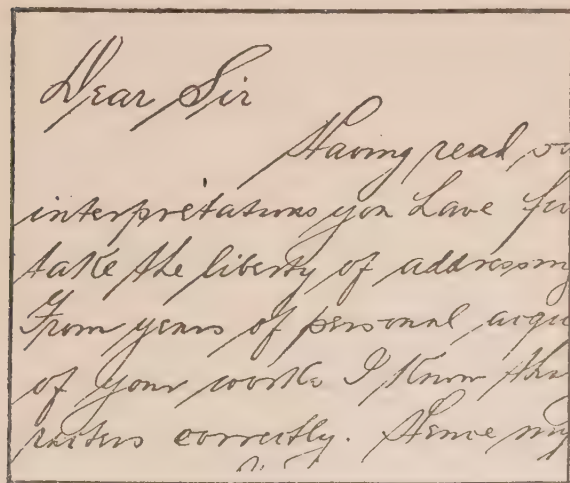 Dear Sir
Having read
interpretations you have
take the liberty of addressing
From years of personal acqu
of your work I know tha
correctly. Hence my